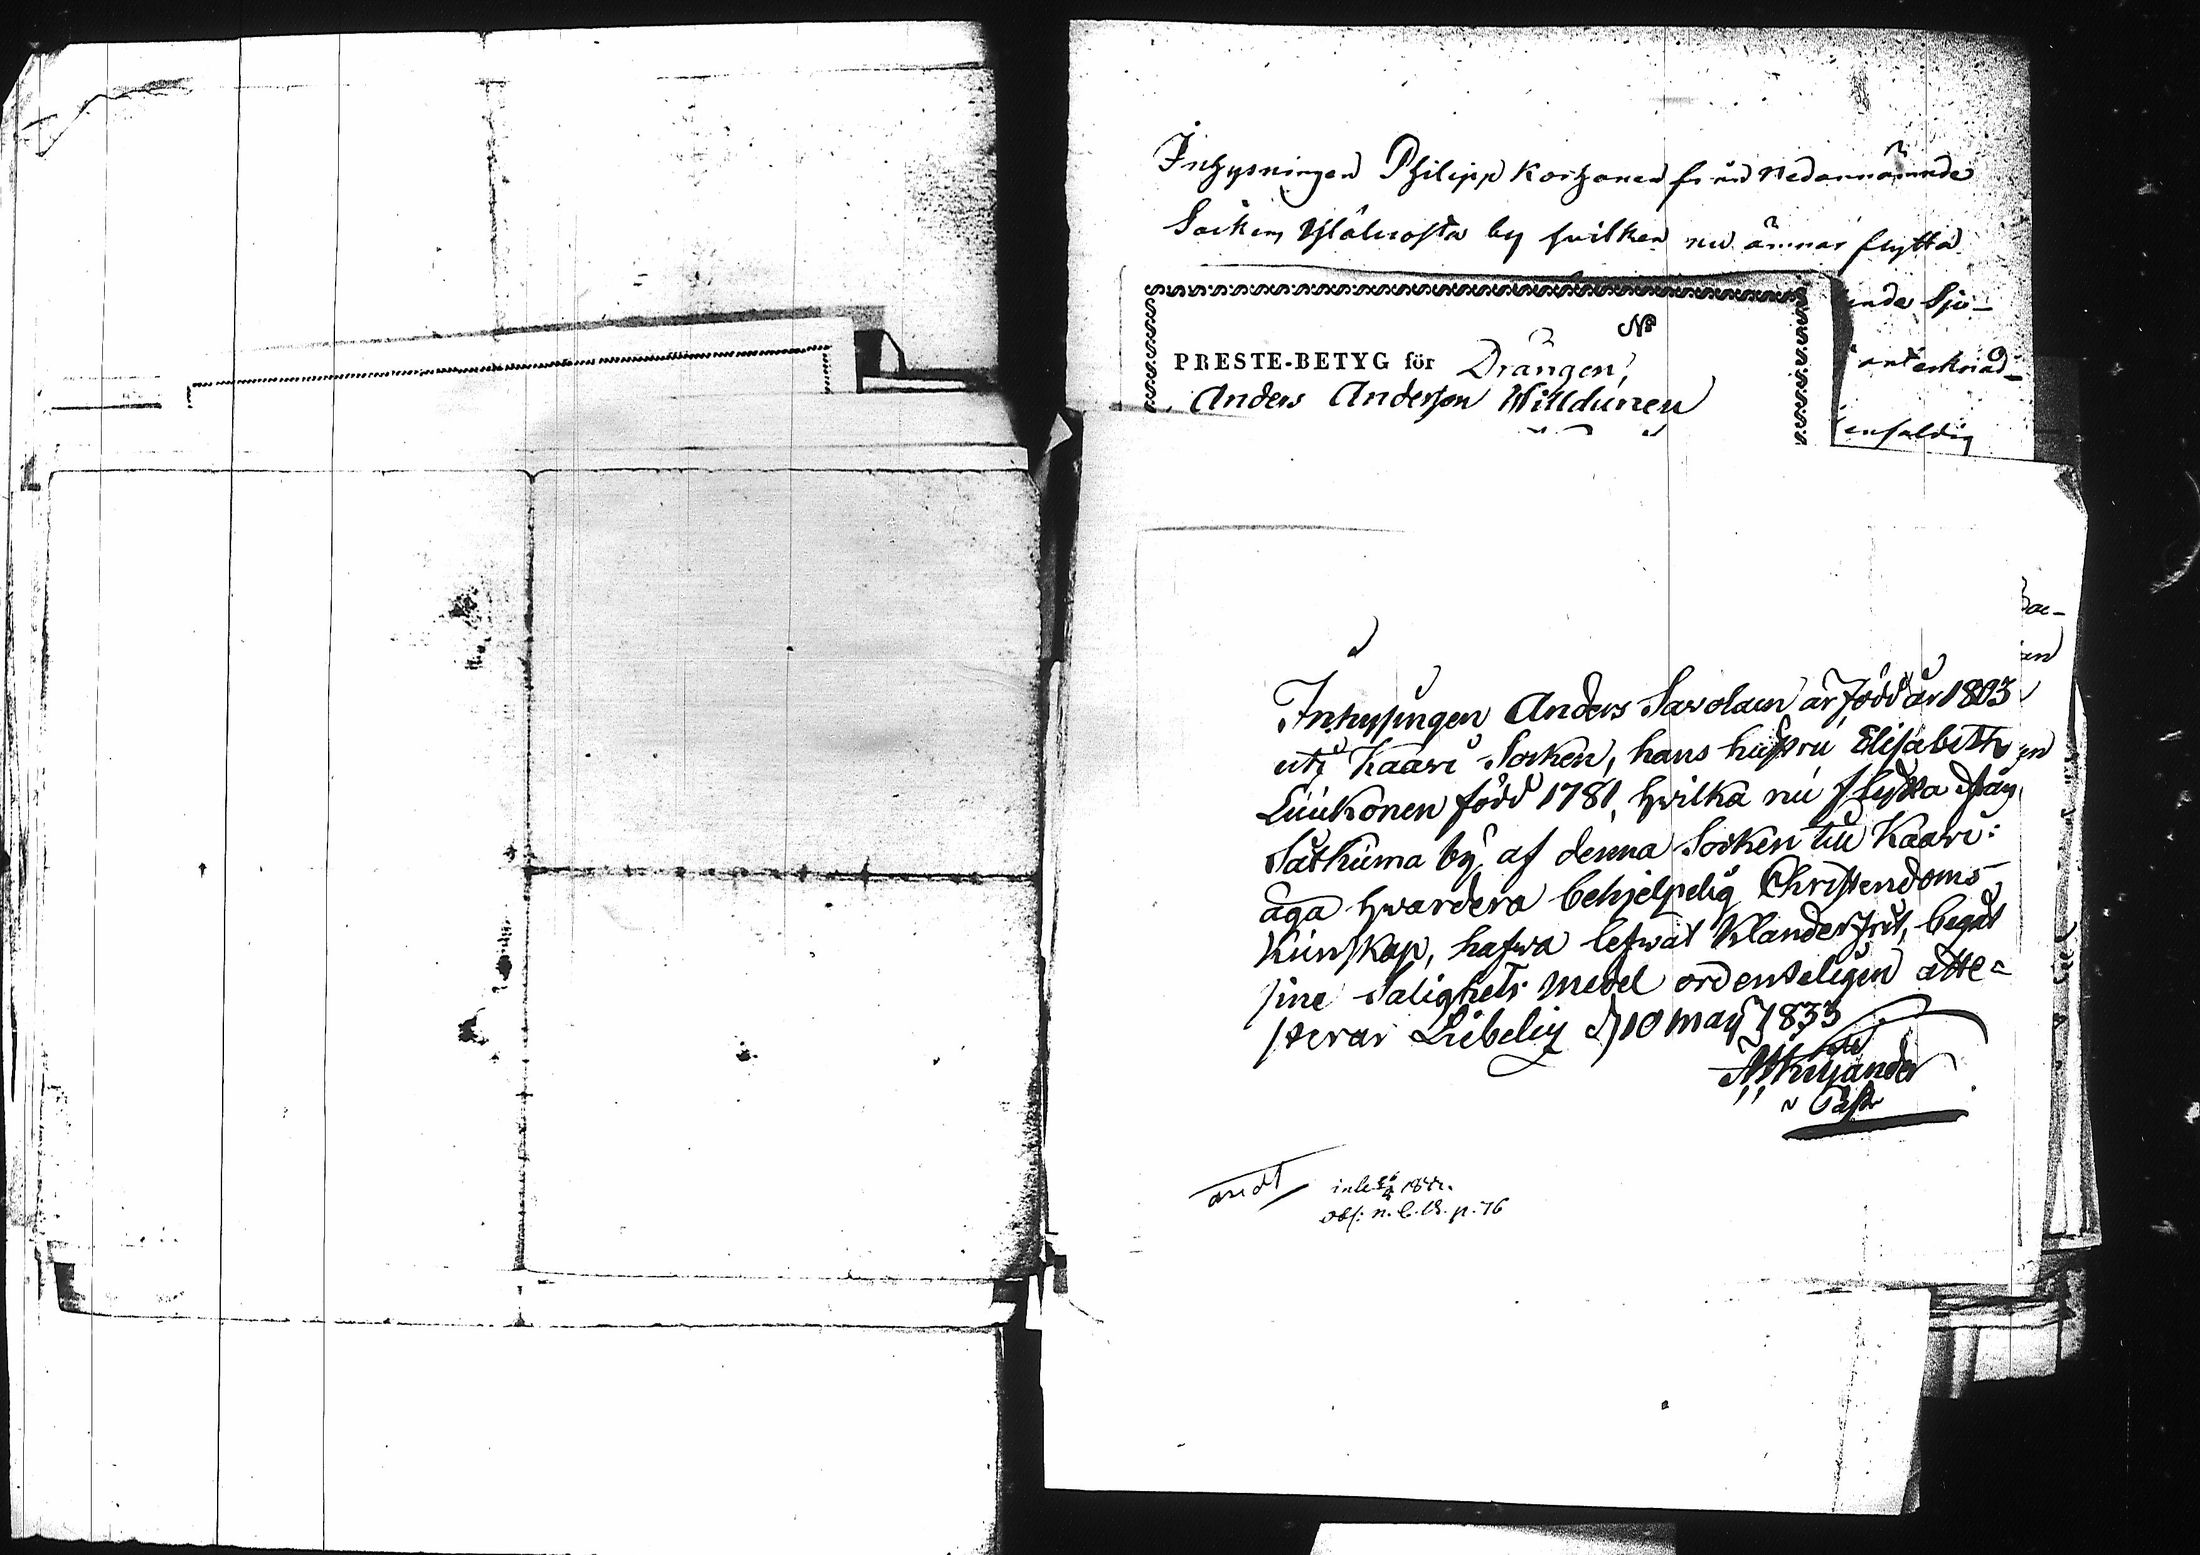 Inhysningen Philipp Korhonen från nedannämnde
Socken, by hvilken nu ämnar flytta
ande Sjö-
No
PRESTE-BETYG för Drängen,
Anders Anderson Willdunen
enfaldig
Inhysingen Anders Sawolain är född år 1803
uti Kaawi Socken, hans hustru Elisabeth
Liukonen född 1781, hwilka nu flytta ifrån
Satkuma by af denna Socken till Kaawi:
äga hwardera behjelpelig Christendoms
kunskap, hafwa lefwat klanderfrit, begåt
sine Salighets medel ordenteligen atte=
sterar Libelig d 10 maij 1833
Past
inl. 18
obs: n. b. p. 76